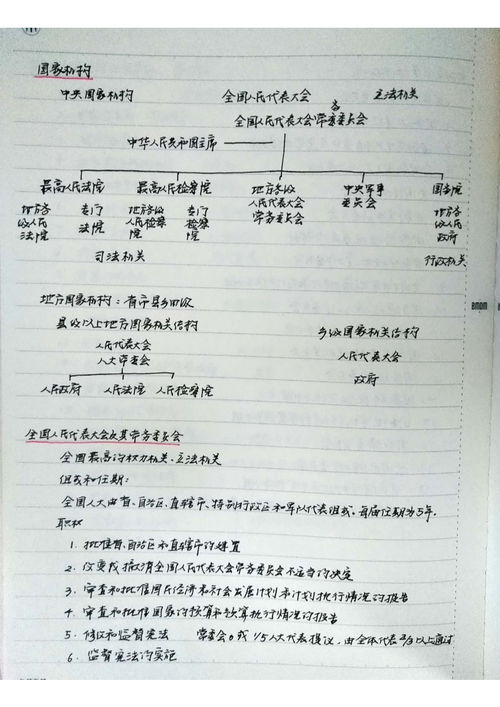 国家机构
中央国家机构 全国人民代表大会 立法机关
全国人民代表大会常务委员会
中华人民共和国主席
最高人民法院 最高人民检察院 地方各级 中央军事 国务院
地方各 专门 地方各级 专门 人民代表大会 委员会 地方各
级人民 法院 人民检察 检察 常务委员会 级人民
法院 院 院 政府
司法机关 行政机关
地方国家机构：有序县乡四级
县级以上地方国家机关结构 乡级国家机关结构
人民代表大会 人民代表大会
人大常委会 政府
人民政府 人民法院 人民检察院
全国人民代表大会及其常务委员会
全国最高的权力机关、立法机关
组成和任期：
全国人大由省、自治区、直辖市、特别行政区和军队代表组成。每届任期为5年.
职权
1. 批准省、自治区和直辖市的建置
2. 改变或撤消全国人民代表大会常务委员会不适当的决定
3. 审查和批准国民经济和社会发展计划和计划执行情况的报告
4. 审查和批准国家的预算和预算执行情况的报告
5. 修改和监督宪法 常委会或1/5人大代表提议，由全体代表2/3以上通过
6. 监督宪法的实施